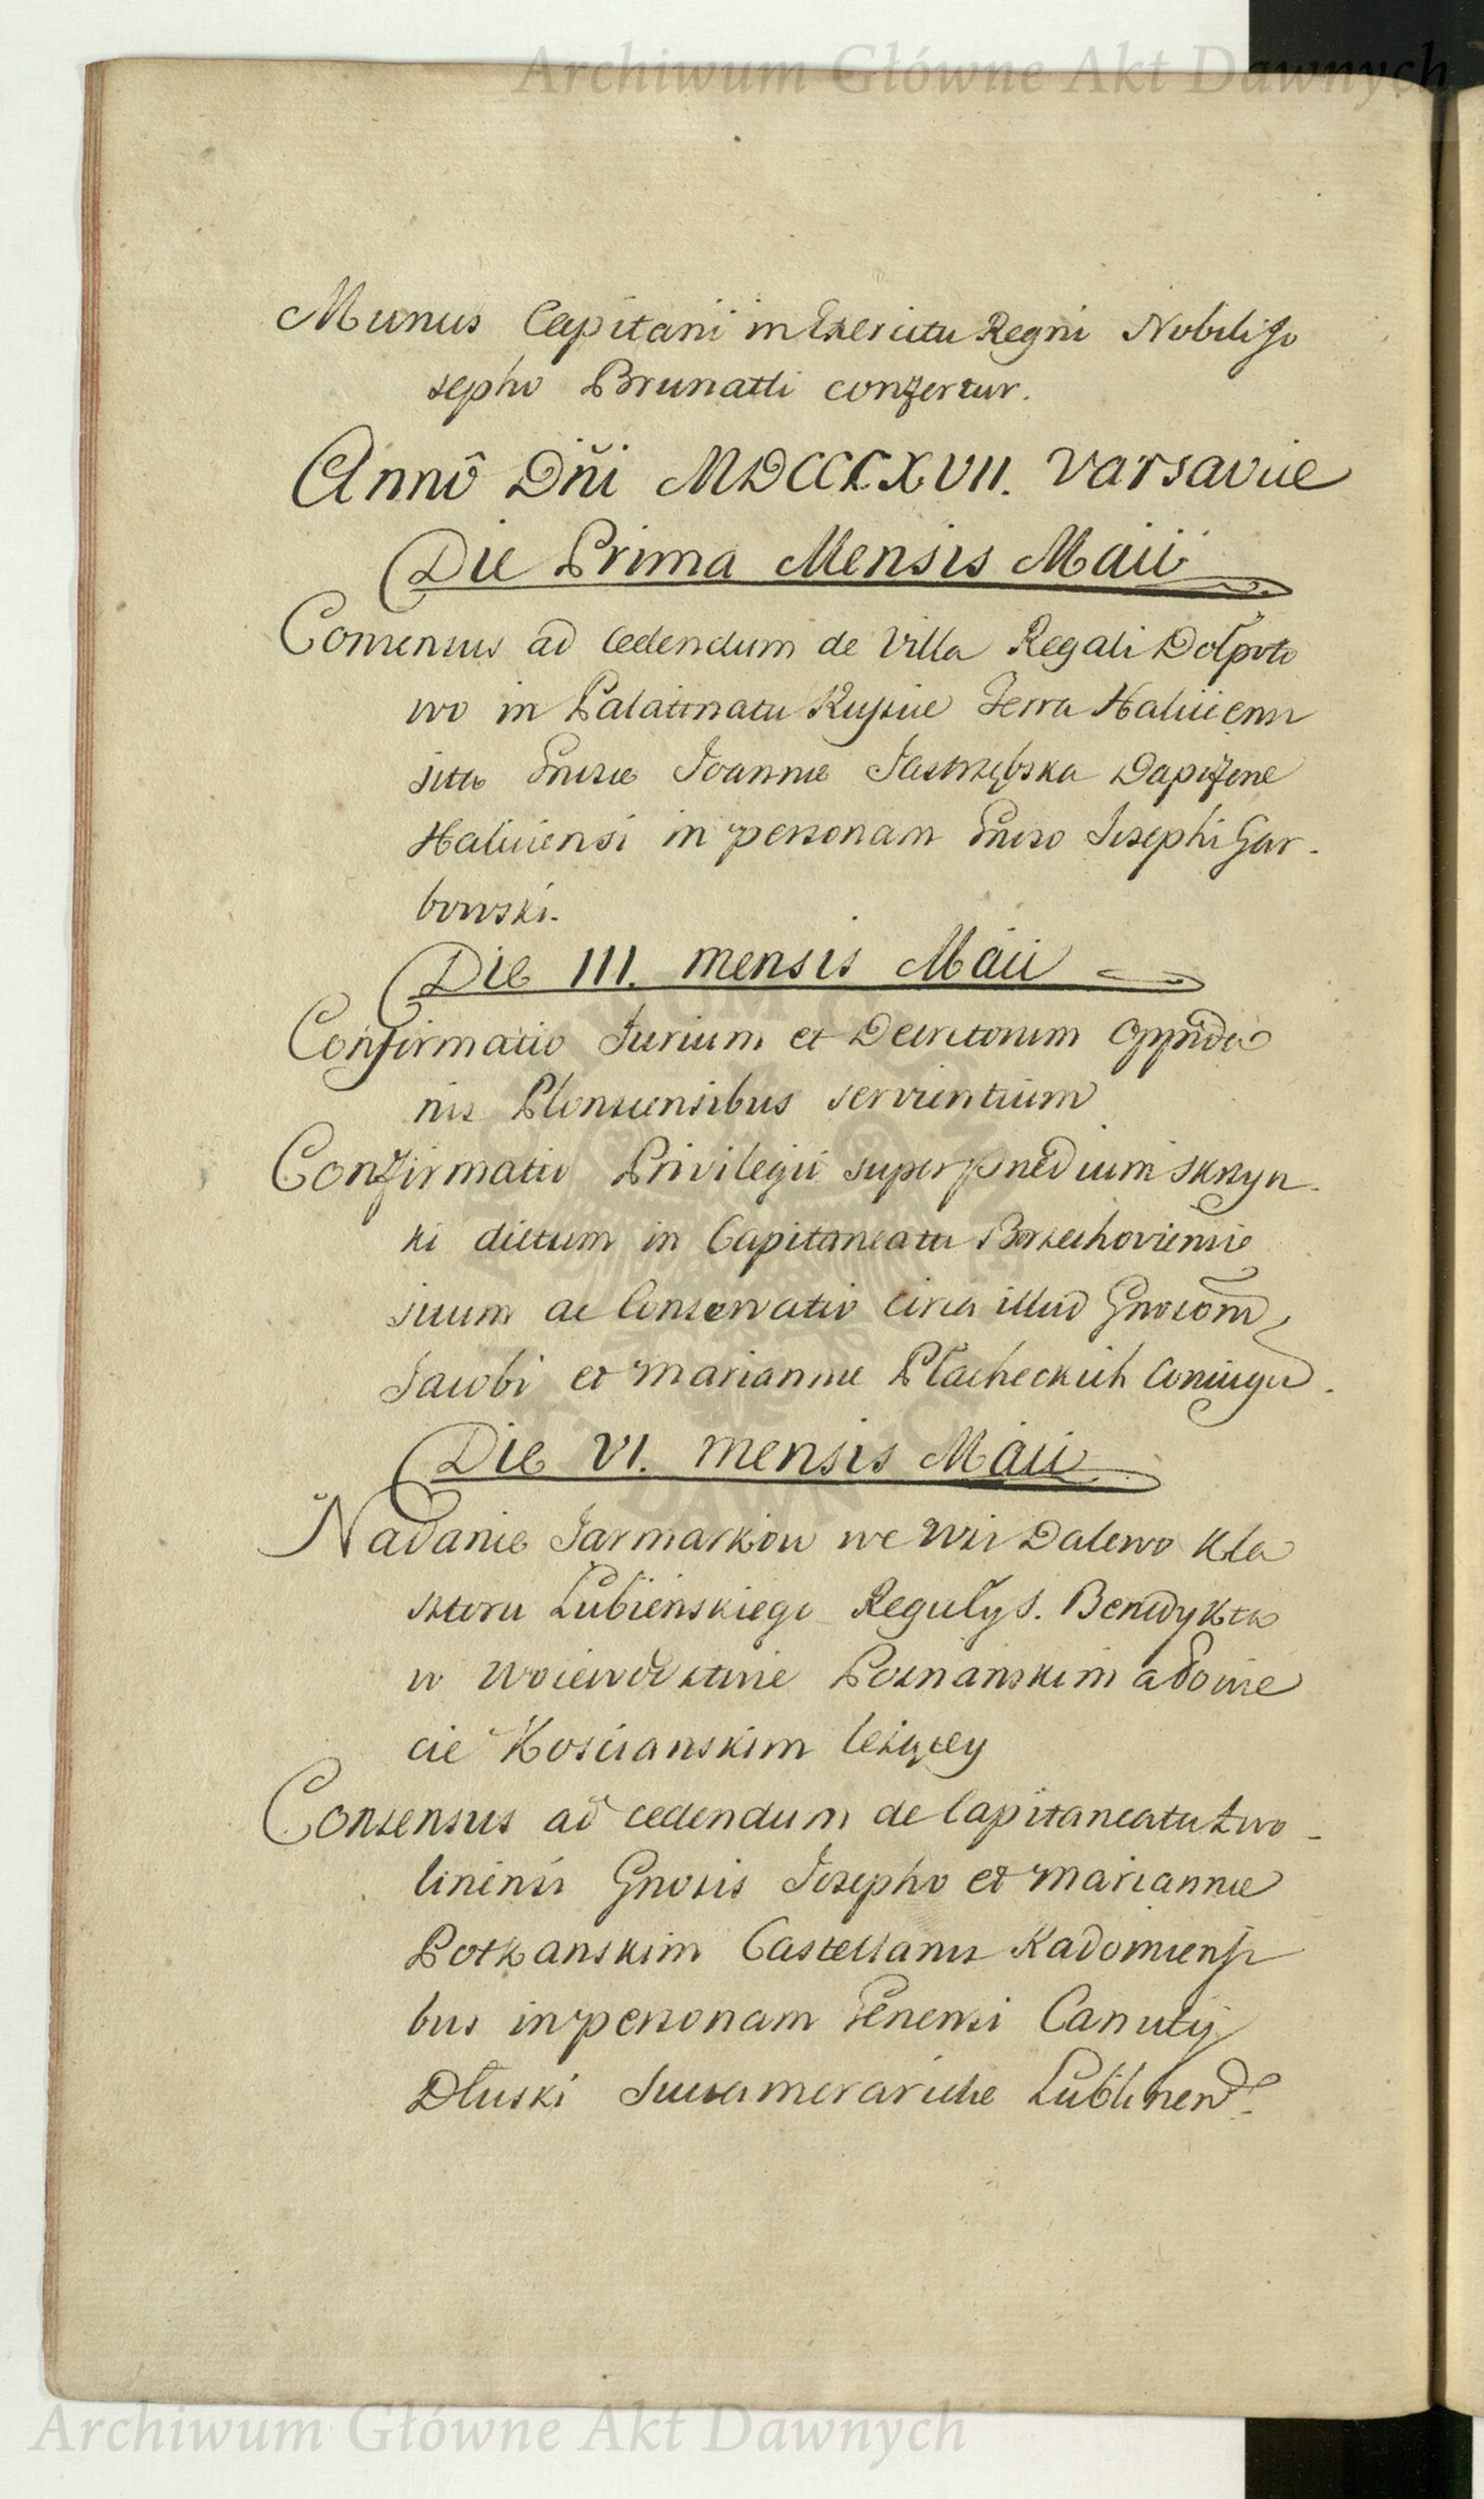 Archiwum Główne Akt Dawnych
Munus Capitani in Exercitu Regni Nobili Jo
sepho Brunatti confertur.
Annô Dñi MDCCLXVII. Varsaviæ
Die Prima Mensis Maii
Consensus ad cedendum de Villa Regali Dołpoto
wo in Palatinatu Russiæ Terra Haliciensi
sita Gnosæ Joannæ Jastrzębska Dapiferæ
Haliciensi in personam Gnoso Josephi Gar-
bowski.
Die III. mensis Maii
Confirmatio Jurium et Decretorum Oppida
nis Plonscensibus servientium
Confirmatio Privilegii super prædium Skrzyn-
ki dictum in Capitaneatu Borzechoviensie
situm ac Conservatio circa illud Gnosom
Jacobi et Mariannæ Płacheckich Coniugu.
Die VI. mensis Maii
Nadanie Jarmarkow we Wsi Dalewo Kla
sztoru Lubienskiego Reguły S. Benedykta
w Woiewodztwie Poznanskim a Powie
cie Kosciańskim leżącey
Consensus ad cedendum de Capitaneatu Zwo-
linensi Gnosis Josepho et Mariannæ
Potkanskim Castellanis Radomiensi
bus in personam Genensi Canuty
Dłuski Succamerariche Lublinen
Archiwum Główne Akt Dawnych